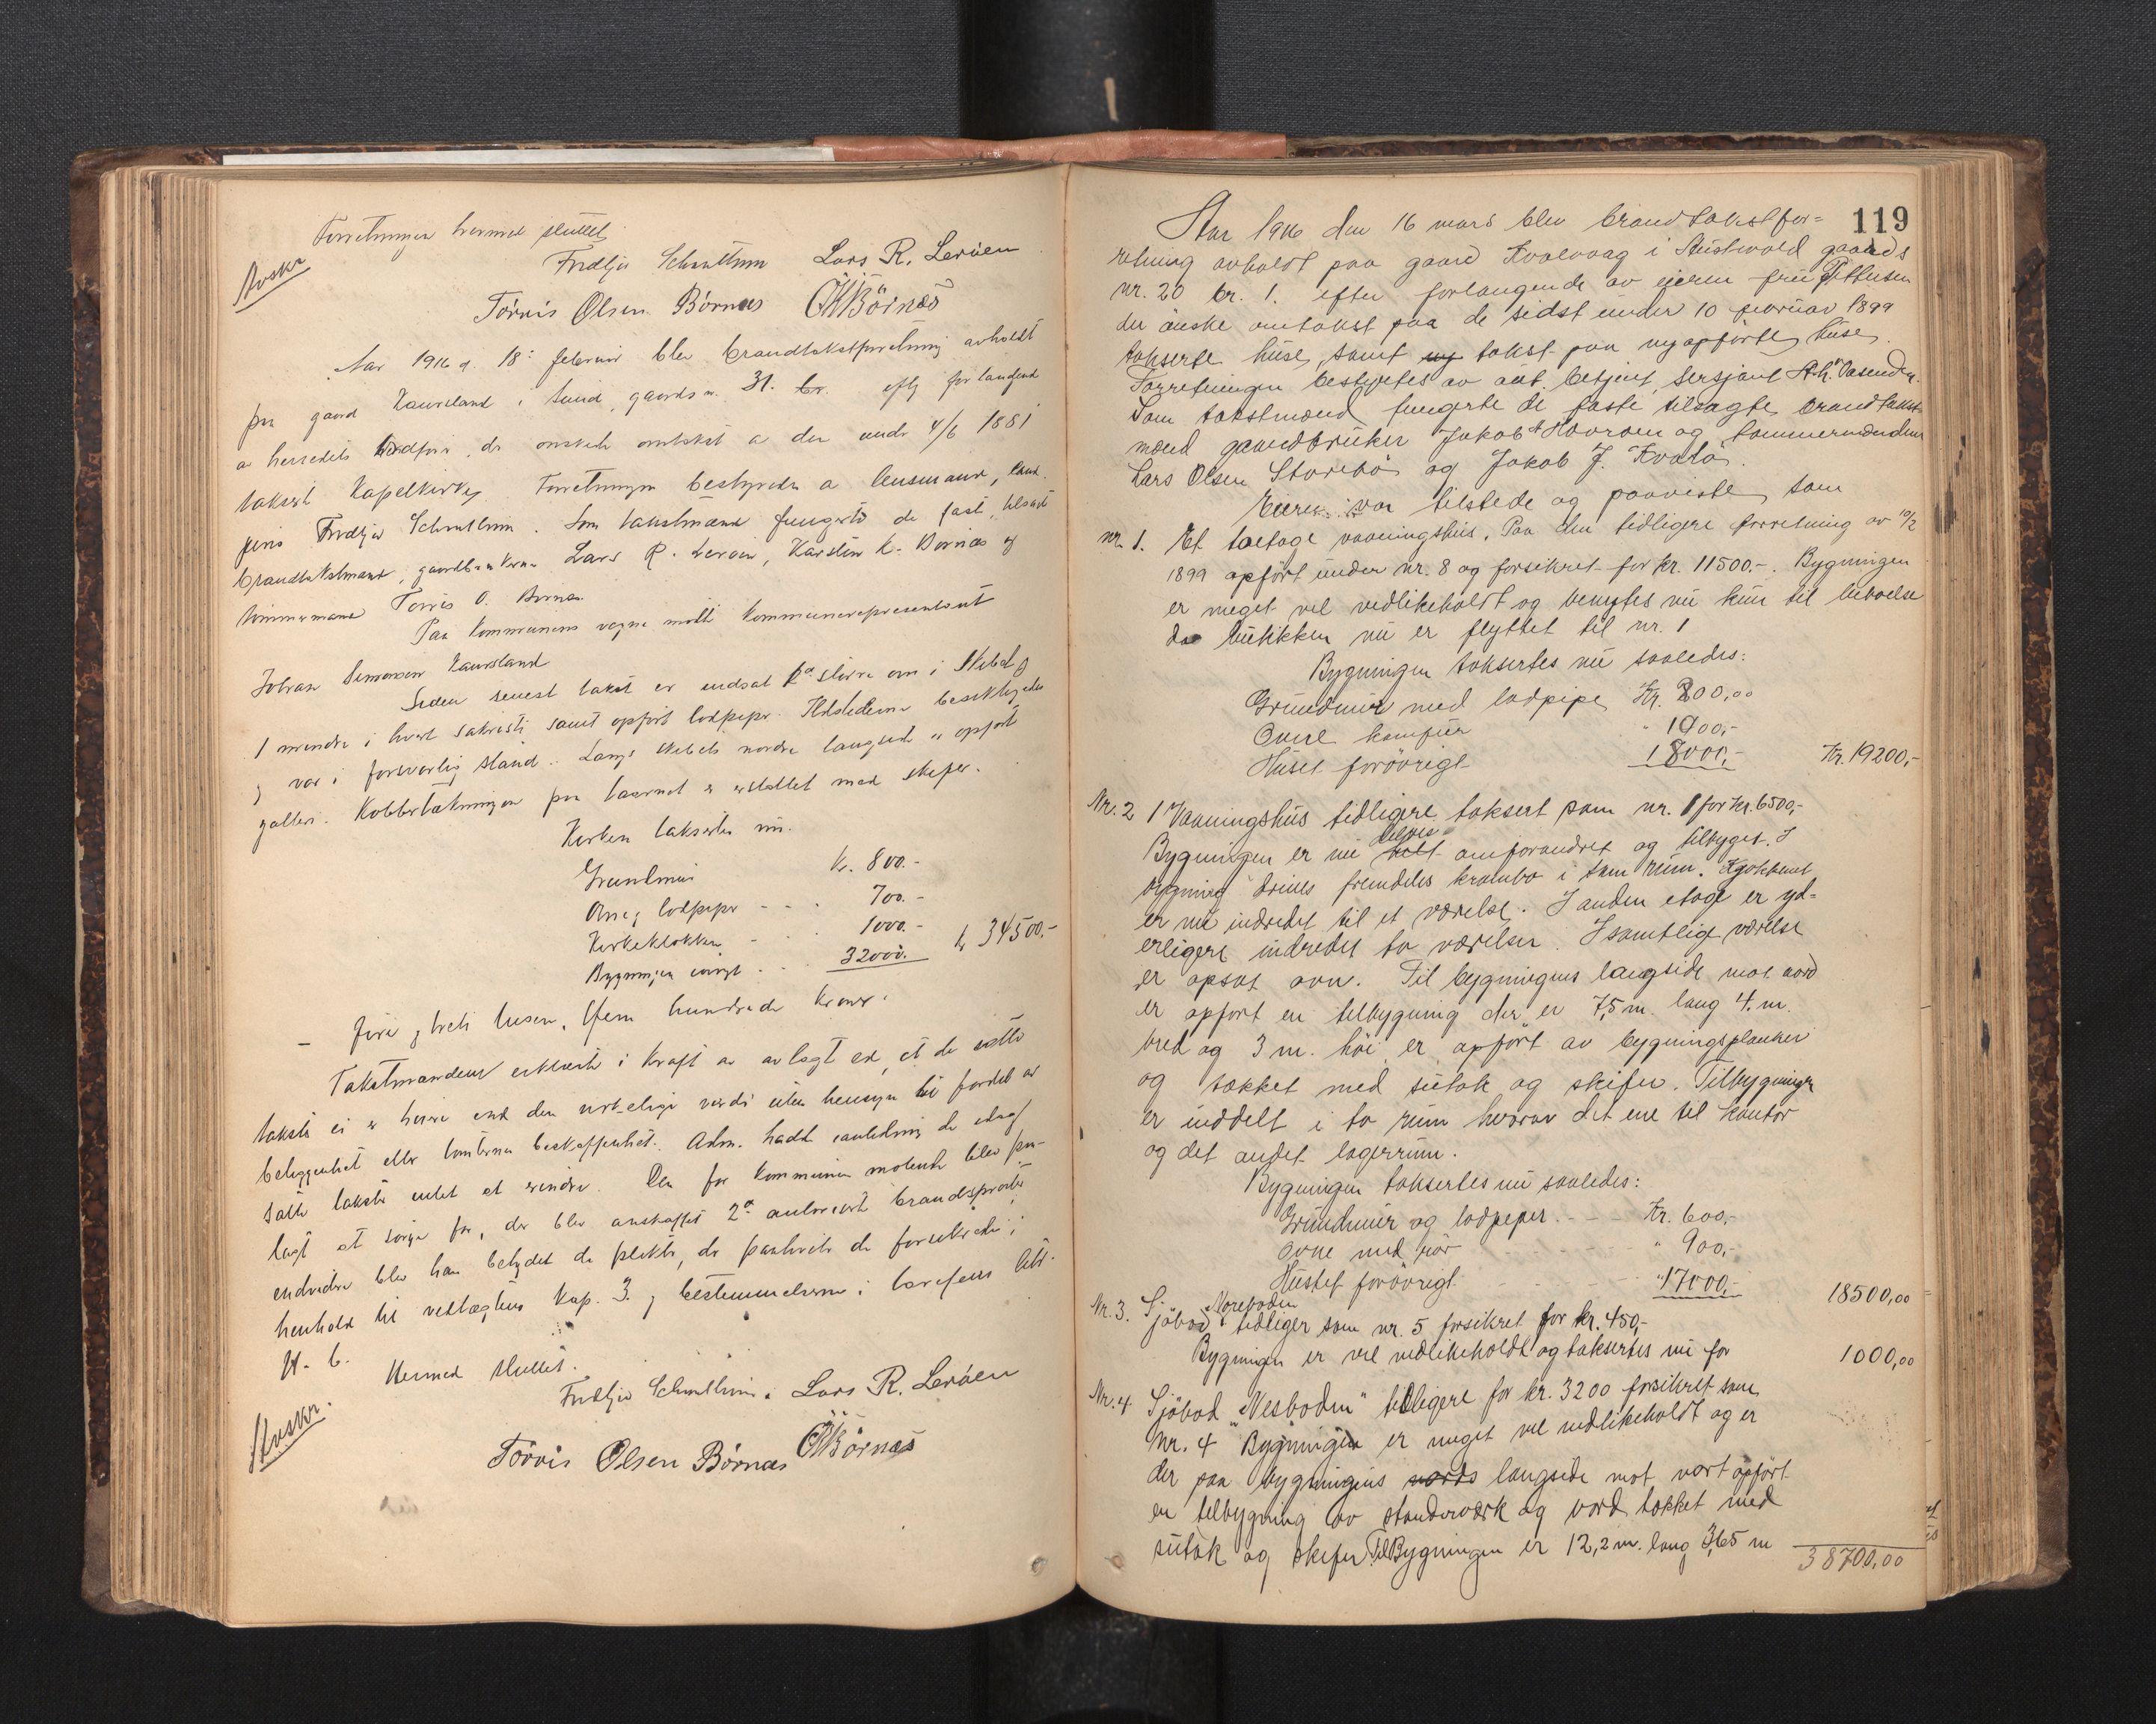 Forretningen hermed sluttet
Avskr
Fredtjer Lars R. Leröen
Torris Olsen Börnæs OKBörnæs
Aar 1916 d. 18: februar blev brandtakstforretning avholdt
paa gaard Kausland i Sund, gaards n. 31. br. eft forlangend
a herredets ordfører, der önsket omtakst a den under 4/6 1881
taksert Kapelkirke. Forretningen bestyredes a lensmand,
Fredtjer. Som takstmænd fungerte de faste, tilsagte
brandtakstmænd, gaardbrukerne Lars R. Leröen, Karsten K. Börnes og
tömmermand Torris O. Börnes.
Paa kommunens vegne mötte kommunerepresentant
Johan Simonsen Kausland
Siden senest takst er indsat 2a större ovn i skibet og
1 mindre i hvert sakristi samt opfört lodpiper. Ildstederne besiktigedes
og var i forsvarlig stand. Langs skibets nordre langside er opfört
galleri. Kobbertækningen paa taarnet er erstattet med skifer.
Kirken takseres nu.
Grundmur Kr. 800.-
Ovne og lodpiper - - . 700.-
Kirkeklokken - . . 1000.-
Bygningen iövrigt . - 32000.- kr 34500.-
- fire og treti tusen, fem hundrede kroner.
Takstmændene erklærte i kraft av avlagt ed, at de satte
takster ei er höiere end den virkelige værdi uten hensyn til fordel av
beliggenhet eller tomternes beskaffenhet. Adm. hadde i anledning de idag
satte takster intet at erindre. Den for kommunen mötende blev paa-
lagt at sörge for, der blev anskaffet 2a autorisert brandspröiter
endvidere blev han betydet de plikter, der paahviler de forsikrede i
henhold til vedtægtens kap. 3. og bestemmelserne i tariffens litr.
H. b.
Hermed sluttet.
Avskr.
Fredtjer Lars R. Leröen
Torris Olsen Börnæs OKBörnæs
119
Aar 1916 den 16 mars blev brandtakstfor=
retning avholdt paa gaard Kvalvaag i Austevold gaards
nr. 20 br. 1. efter forlangende av eieren fru
der önske omtakst paa de sidst under 10 februar 1899
takserte huse, samt ny takst paa nyopförte huse.
Forretningen bestyrtes av aut. betjent, sersjant Vasenden.
Som takstmænd fungerte de faste tilsagte brandtakst-
mænd gaardbruker Jakob Hovroen og tömmermændene
Lars Olsen Storebö og Jakob J. Kvala.
Eieren var tilstede og paaviste som
nr. 1. Et toetage vaaningshus. Paa den tidligere forretning av 10/2
1899 opfört under nr. 8 og forsikret for kr. 11500.-. Bygningen
er meget vel vedlikeholdt og benyttes nu kun til beboelse
da butikken nu er flyttet til nr. 1
Bygningen taksertes nu saaledes:
Grundmur med lodpipe Kr. 200,00
Ovne komfur " 1000,-
Huset forövrigt 18000,- Kr. 19200,-
Nr. 2 1 Vaaningshus tidligere taksert som nr. 1 for Kr. 6500,-
Bygningen er nu helt delvis omforandret og tilbyget. I
bygning drives fremdeles krambo i samme rum. Kjökkenet
er nu indredet til et værelse. I anden etage er yd-
erligere indredet to værelser. I samtlige værelse
er opsat ovn. Til bygningens langside mot nord
er opfört en tilbygning der er 7,5 m. lang 4. m.
bred og 3 m. höi er opfört av bygningsplanker
og tækket med sutak og skifer. Tilbygningen
er inddelt i to rum hvorav det ene til kontor
og det andet lagerrum.
Bygningen taksertes nu saaledes:
Grundmur og lodpiper. - - - Kr. 600,-
Ovne med rör " 900,-
Huset forövrigt " 17000,- 18500,00
Nr. 3. Sjöbod Noreboden tidliger som nr. 5 forsikret for kr. 450,-
Bygningen er vel vedlikeholdt og taksertes nu for 1000,00
Nr. 4 Sjöbod "Nesboden" tidligere for kr. 3200 forsikret som
Nr. 4 Bygningen er meget vel vedlikeholdt og er
der paa bygningens nords langside mot vart opfört
en tilbygning av standerværk og bord tækket med
sutak og skifer. TilBygningen er 12,2 m. lang 3,65 m
38700,00